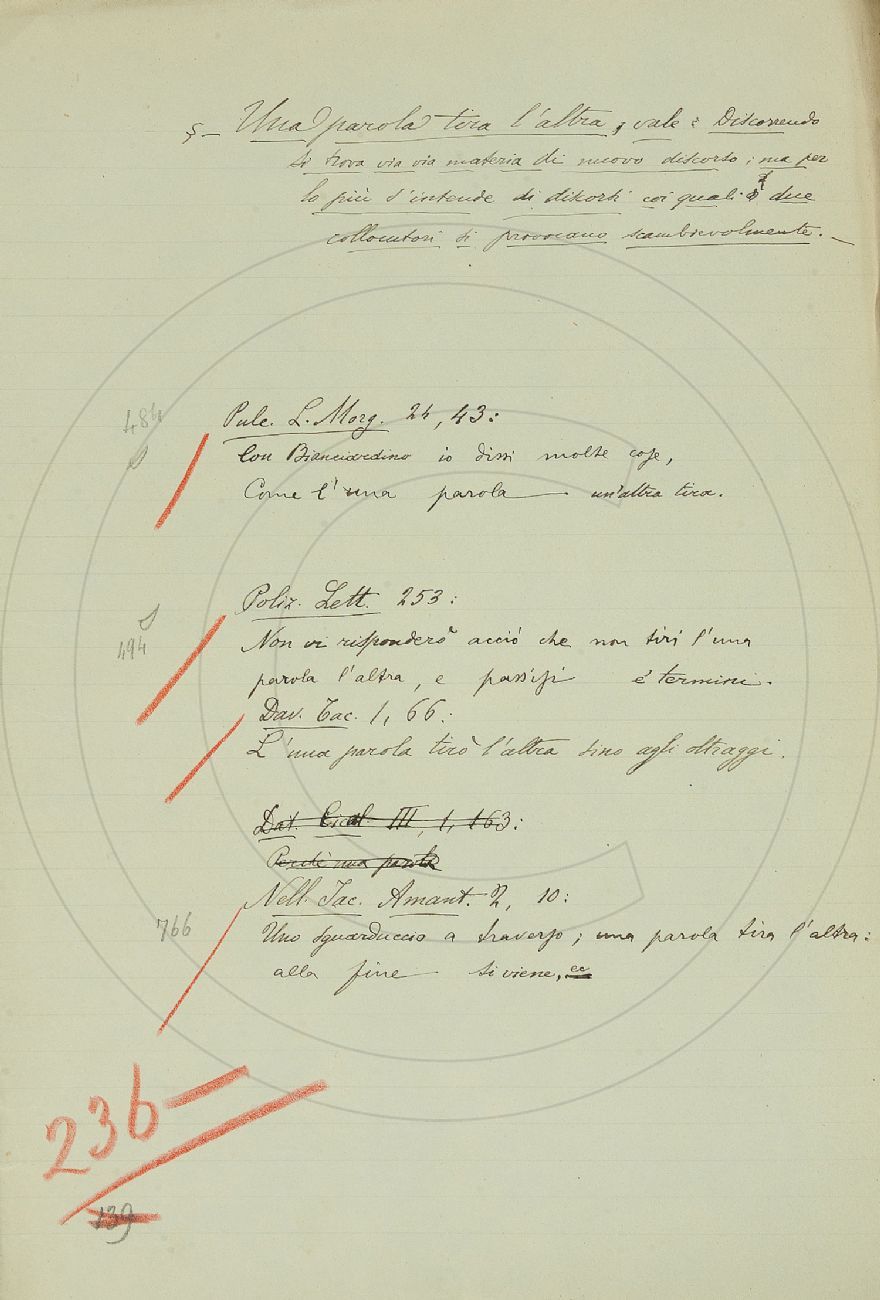 § – Una parola tira l'altra, vale: Discorrendo
si trova via via materia di nuovo discorso; ma per
lo più s'intende di discorsi coi quali i due
collocutori si provocano scambievolmente. –
484
Pulc. L. Morg. 24, 43:
Con Bianciardino io dissi molte cose,
Come l'una parola un'altra tira.
Poliz. Lett. 253:
494
Non vi risponderò acciò che non tiri l'una
parola l'altra, e passisi e' termini.
Dav. Tac. 1, 66:
L'una parola tirò l'altra sino agli oltraggi.
Dat. Cical. III, 1, 163:
Perchè una parola
Nell. Jac. Amant. 2, 10:
766
Uno sguarduccio a traverso; una parola tira l'altra:
alla fine si viene, ec
236 –
139